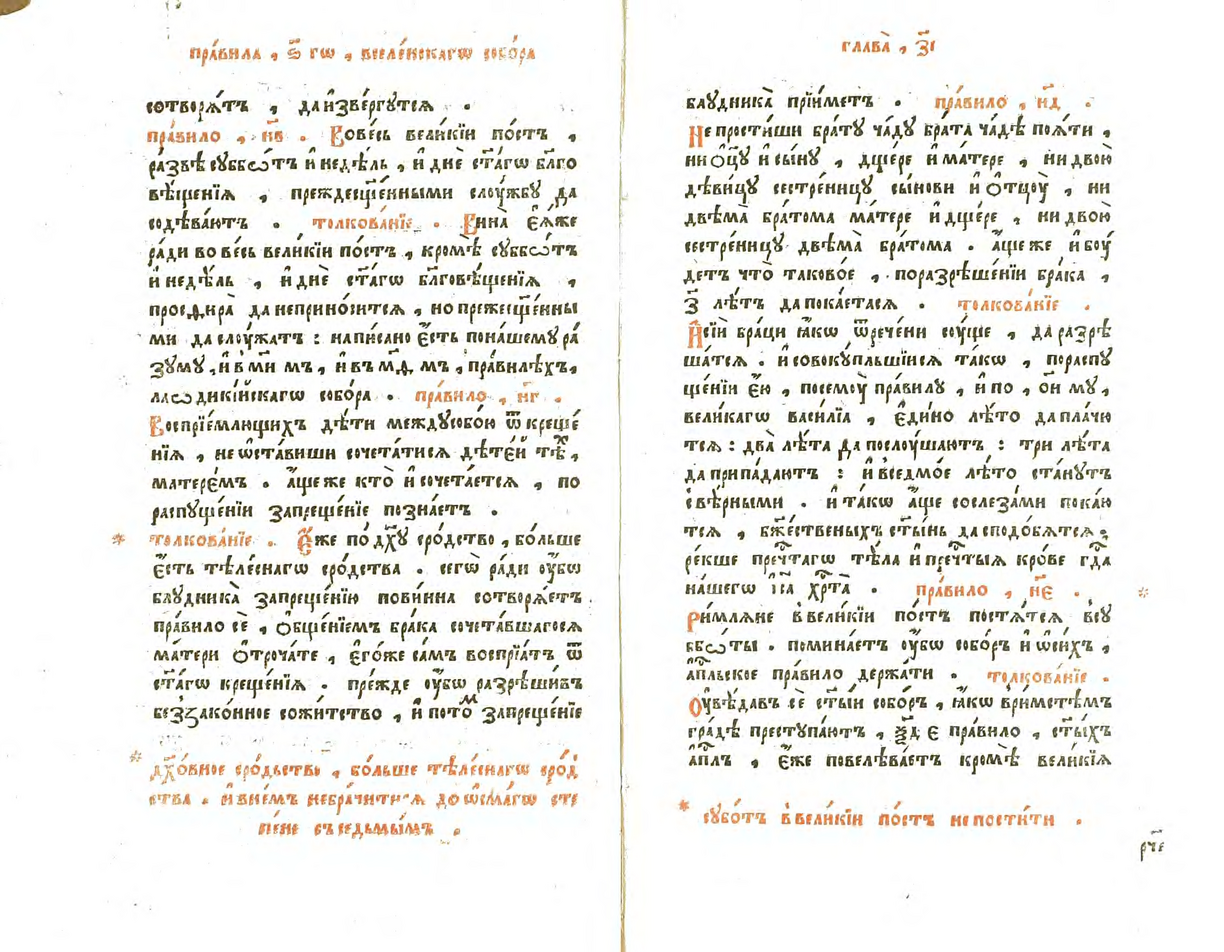 пра́вила , ѕ҃ гѡ , вселе́нскагѡ собо́ра
сотворѧ́тъ , да и҆зве́ргꙋтсѧ .
пра́вило , н҃в . Во ве́сь вели́кїи по́стъ ,
ра́звѣ сꙋббѡ́тъ и҆ недѣ́ль , и҆ днѐ ст҃а́гѡ бл҃го
вѣ́щенїѧ , преждесщ҃е́нными слоу́жбꙋ да
содѣва́ютъ . толкова́нїе . Вина̀ є҆ѧ́же
ра́ди во ве́сь вели́кїи по́стъ , кромѣ̀ сꙋббѡ́тъ
и҆ недѣ́ль , и҆ днѐ ст҃а́гѡ бл҃говѣ́щенїѧ ,
просѳира̀ да не прино́ситсѧ , но прежесщ҃е́нны
ми да слоу́жатъ : напи́сано є҆́сть по на́шемꙋ ра́
зꙋмꙋ , и҆ в м҃и мъ , и҆ въ м҃ѳ мъ , пра́вилѣхъ ,
лаѡдикі́искагѡ собо́ра . пра́вило , н҃г .
Воспрїе́млющихъ дѣ́ти междꙋ собо́ю ѿ креще́
нїѧ , не ѡ҆ста́виши сочета́тисѧ дѣте́й тѣ́х ,
матере́мъ . а҆́ще же кто̀ и҆ сочета́етсѧ , по
распꙋще́нїи запреще́нїе позна́етъ .
* толкова́нїе . Е҆́же по дх҃ꙋ сро́дство , бо́льше
є҆́сть тѣле́снагѡ сро́дства . сегѡ̀ ра́ди оу҆́бѡ
блꙋдника̀ запреще́нїю пови́нна сотворѧ́етъ
пра́вило сѐ , ѻ҆бще́нїемъ бра́ка сочета́вшагосѧ
ма́тери ѻ҆троча́те , є҆го́же са́мъ воспрїѧ́тъ ѿ
ст҃а́гѡ креще́нїѧ . пре́жде оу҆́бѡ разрѣши́въ
беззако́нное сожи́тство , и҆ пото́м запреще́нїе
* дх҃о́вное сро́дьство , бо́льше тѣле́снагѡ сро́д
ства . и҆ в не́мъ небра́читисѧ до ѡ҆сма́гѡ сте
пе́не съ седьмы́мъ .
глава̀ , з҃і
блꙋдника̀ прїи́метъ . пра́вило , н҃д .
Не прости́ши бра́тꙋ ча́дꙋ бра́та ча́дѣ поѧ́ти ,
ни ѻ҆ц҃ꙋ̀ и҆ сы́нꙋ , дще́ре и҆ ма́тере , ни двою̀
дѣви́цꙋ сестре́ницꙋ сы́нови и҆ ѻ҆тцоу̀ , ни
двѣма̀ бра́тома ма́тере и҆ дще́ре , ни двою̀
сестре́ницꙋ двѣма̀ бра́тома . а҆́ще же и҆ боу́
детъ что̀ таково́е , по разрѣше́нїи бра́ка ,
з҃ лѣ́тъ да пока́етасѧ . толкова́нїе .
И҆ сїи́ бра́ци ꙗ҆́кѡ ѿрече́ни соу́ще , да разрѣ
ша́тсѧ . и҆ совокꙋ́пльшїисѧ та́кѡ , по распꙋ
ще́нїи є҆ю̀ , по семоу̀ пра́вилꙋ , и҆ по , о҃и мꙋ ,
вели́кагѡ васи́лїа , є҆ди́но лѣ́то да пла́чю
тсѧ : два̀ лѣ́та да послоу́шаютъ : три лѣ́та
да припа́даютъ : и҆ в седмо́е лѣ́то ста́нꙋтъ
с вѣ́рными . и҆ та́кѡ а҆́ще со слеза́ми пока́ю
тсѧ , бж҃е́ственыхъ ст҃ы́нь да сподо́бѧтсѧ ,
ре́кше пречⷭ҇тагѡ тѣ́ла и҆ пречⷭ҇тыѧ кро́ве гдⷭ҇а
на́шегѡ і҆с҃а хрⷭ҇та̀ . пра́вило , н҃є . *
Ри́млѧне в вели́кїи по́стъ постѧ́тсѧ в сꙋ
ббѡ́ты . помина́етъ оу҆́бѡ собо́ръ и҆ ѡ҆ си́хъ ,
а҆пⷭ҇льское пра́вило держа́ти . толкова́нїе .
Оу҆вѣ́давъ сѐ ст҃ы́и собо́ръ , ꙗ҆́кѡ в ри́мстѣмъ
гра́дѣ престꙋпа́ютъ , ѯ҃д є пра́вило , ст҃ы́хъ
а҆пⷭ҇лъ , є҆́же повелѣва́етъ кромѣ̀ вели́кїѧ
* сꙋбо́тъ в вели́кїи по́стъ не пости́ти .
рч҃е